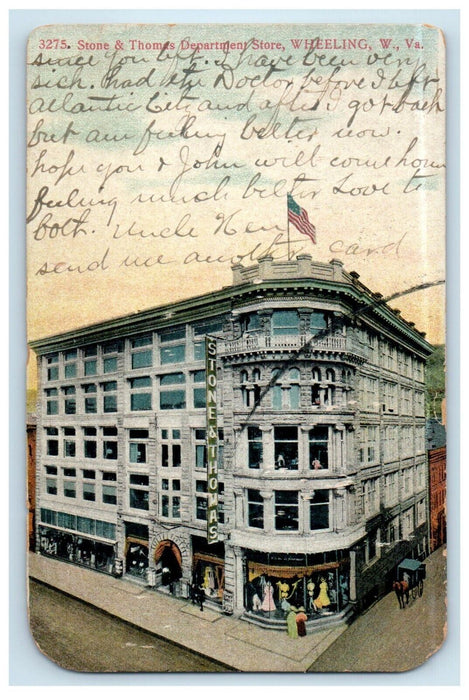 3275. Stone & Thomas Department Store, WHEELING, W., Va.
since you left. I have been very
sick. had the Doctor before I left
Atlantic City and after I got back
but am feeling better now.
hope you & John will come home
feeling much better Love to
both. Uncle Hen
send me another card
STONE & THOMAS